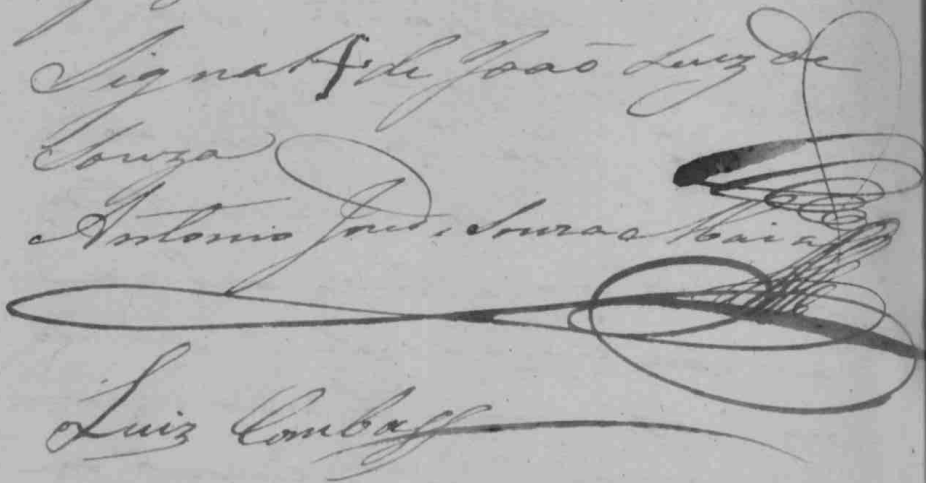 Signal + de João Luiz de
Souza
Antonio José Souza Maia
Luiz